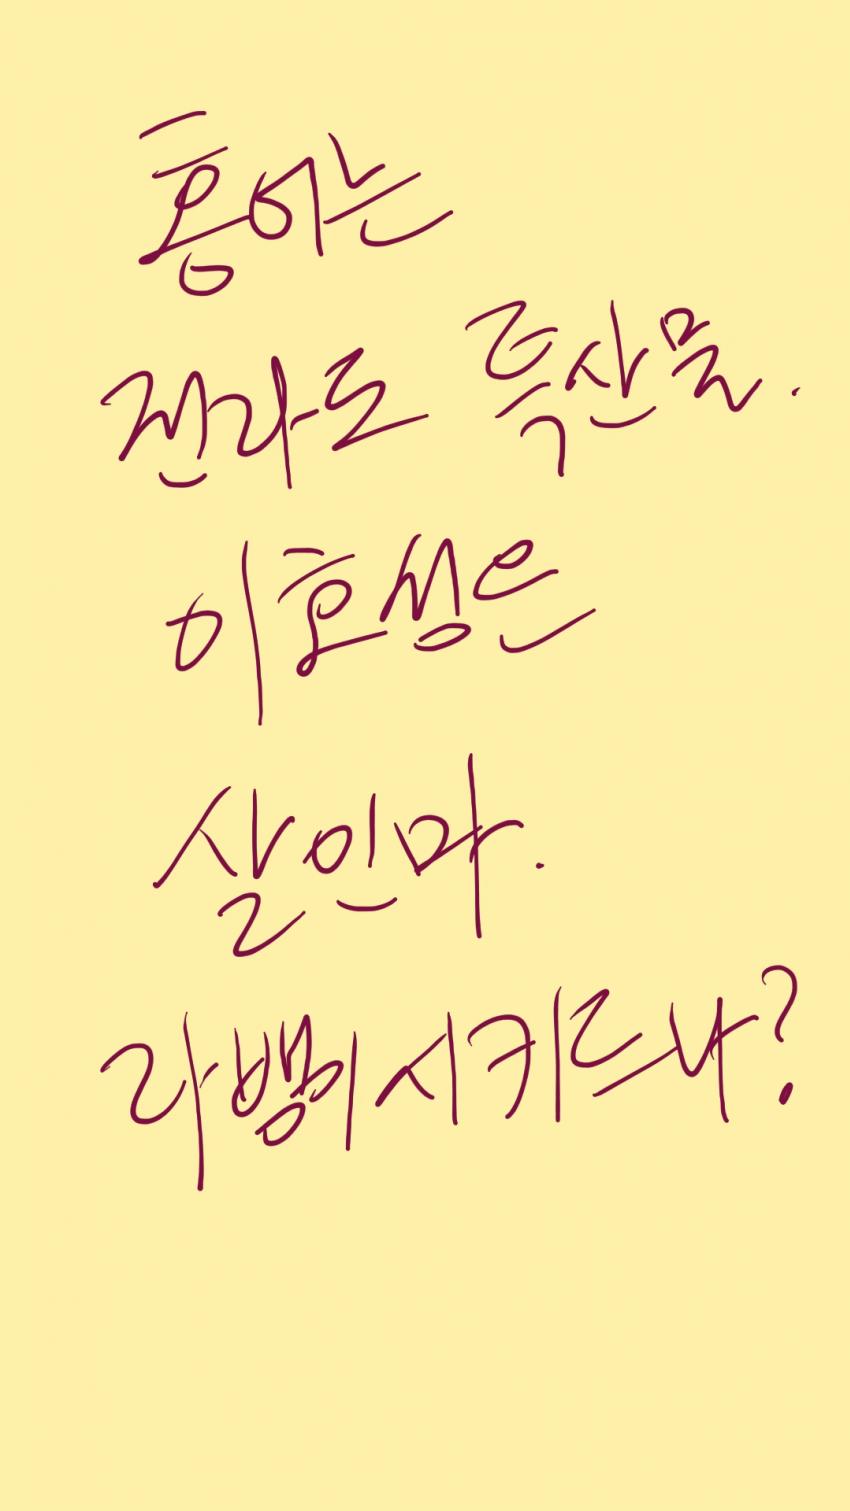 홍어는
전라도 특산물.
이호성은
살인마.
라뱀이시키드나?